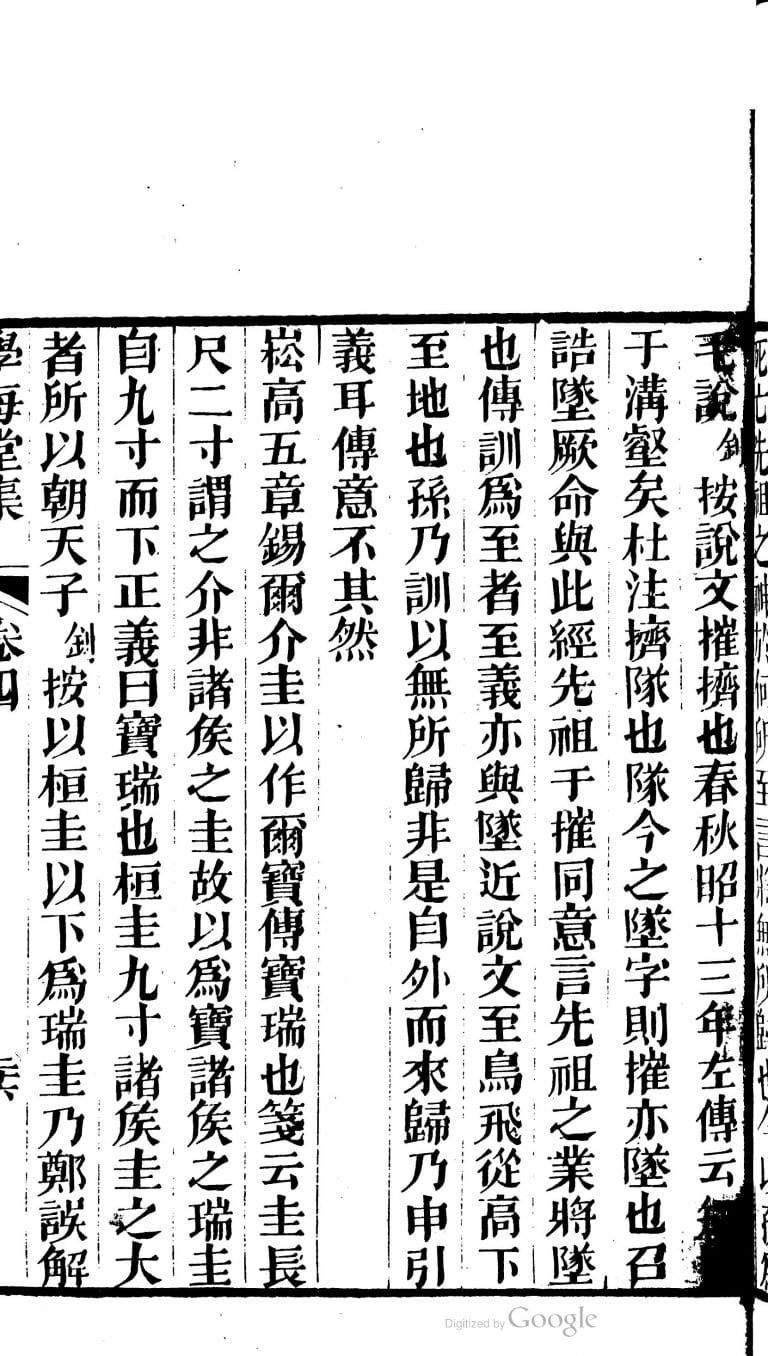 毛說 釗 按說文摧擠也春秋昭十三年左傳云
于溝壑矣杜注擠隊也隊今之墜字則摧亦墜也召
誥墜厥命與此經先祖于摧同意言先祖之業將墜
也傳訓爲至者至義亦與墜近說文至鳥飛從高下
至地也孫乃訓以無所歸非是自外而來歸乃申引
義耳傳意不其然
崧高五章錫爾介圭以作爾寶傳寶瑞也箋云圭長
尺二寸謂之介非諸矦之圭故以爲寶諸矦之瑞圭
自九寸而下正義曰寶瑞也桓圭九寸諸矦圭之大
者所以朝天子 釗 按以桓圭以下爲瑞圭乃鄭誤解
學海堂集 卷四
Digitized by Google